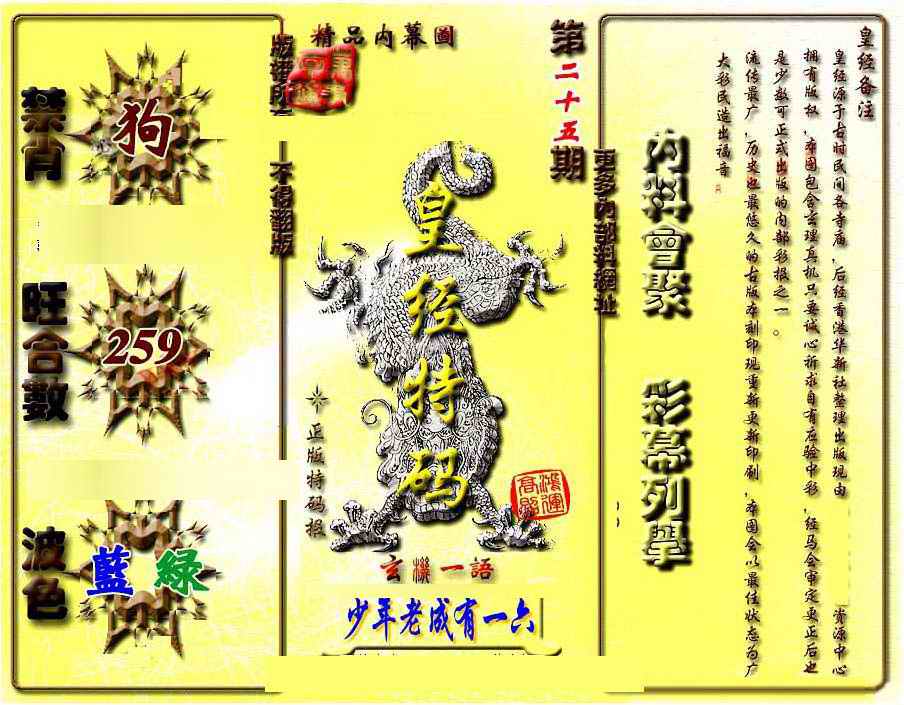 禁肖
狗
旺合數
259
波色
藍 綠
版權所
不得翻版
精品内幕圖
第二十五期
皇经特码
正版特码报
鴻運高照
玄機一語
少年老成有一六
更多内部料網址
内料會聚
彩幕列舉
皇经备注
皇经源于古时民间各寺庙,后经香港华新社整理出版现由 资源中心
拥有版权,本图包含玄理真机只要诚心祈求自有应验中彩,经马会审定更正后也
是少数可正式出版的内部彩报之一。
流传最广,历史也最悠久的古版本刻印现重新更新印刷,本图会以最佳状态为广
大彩民造出福音